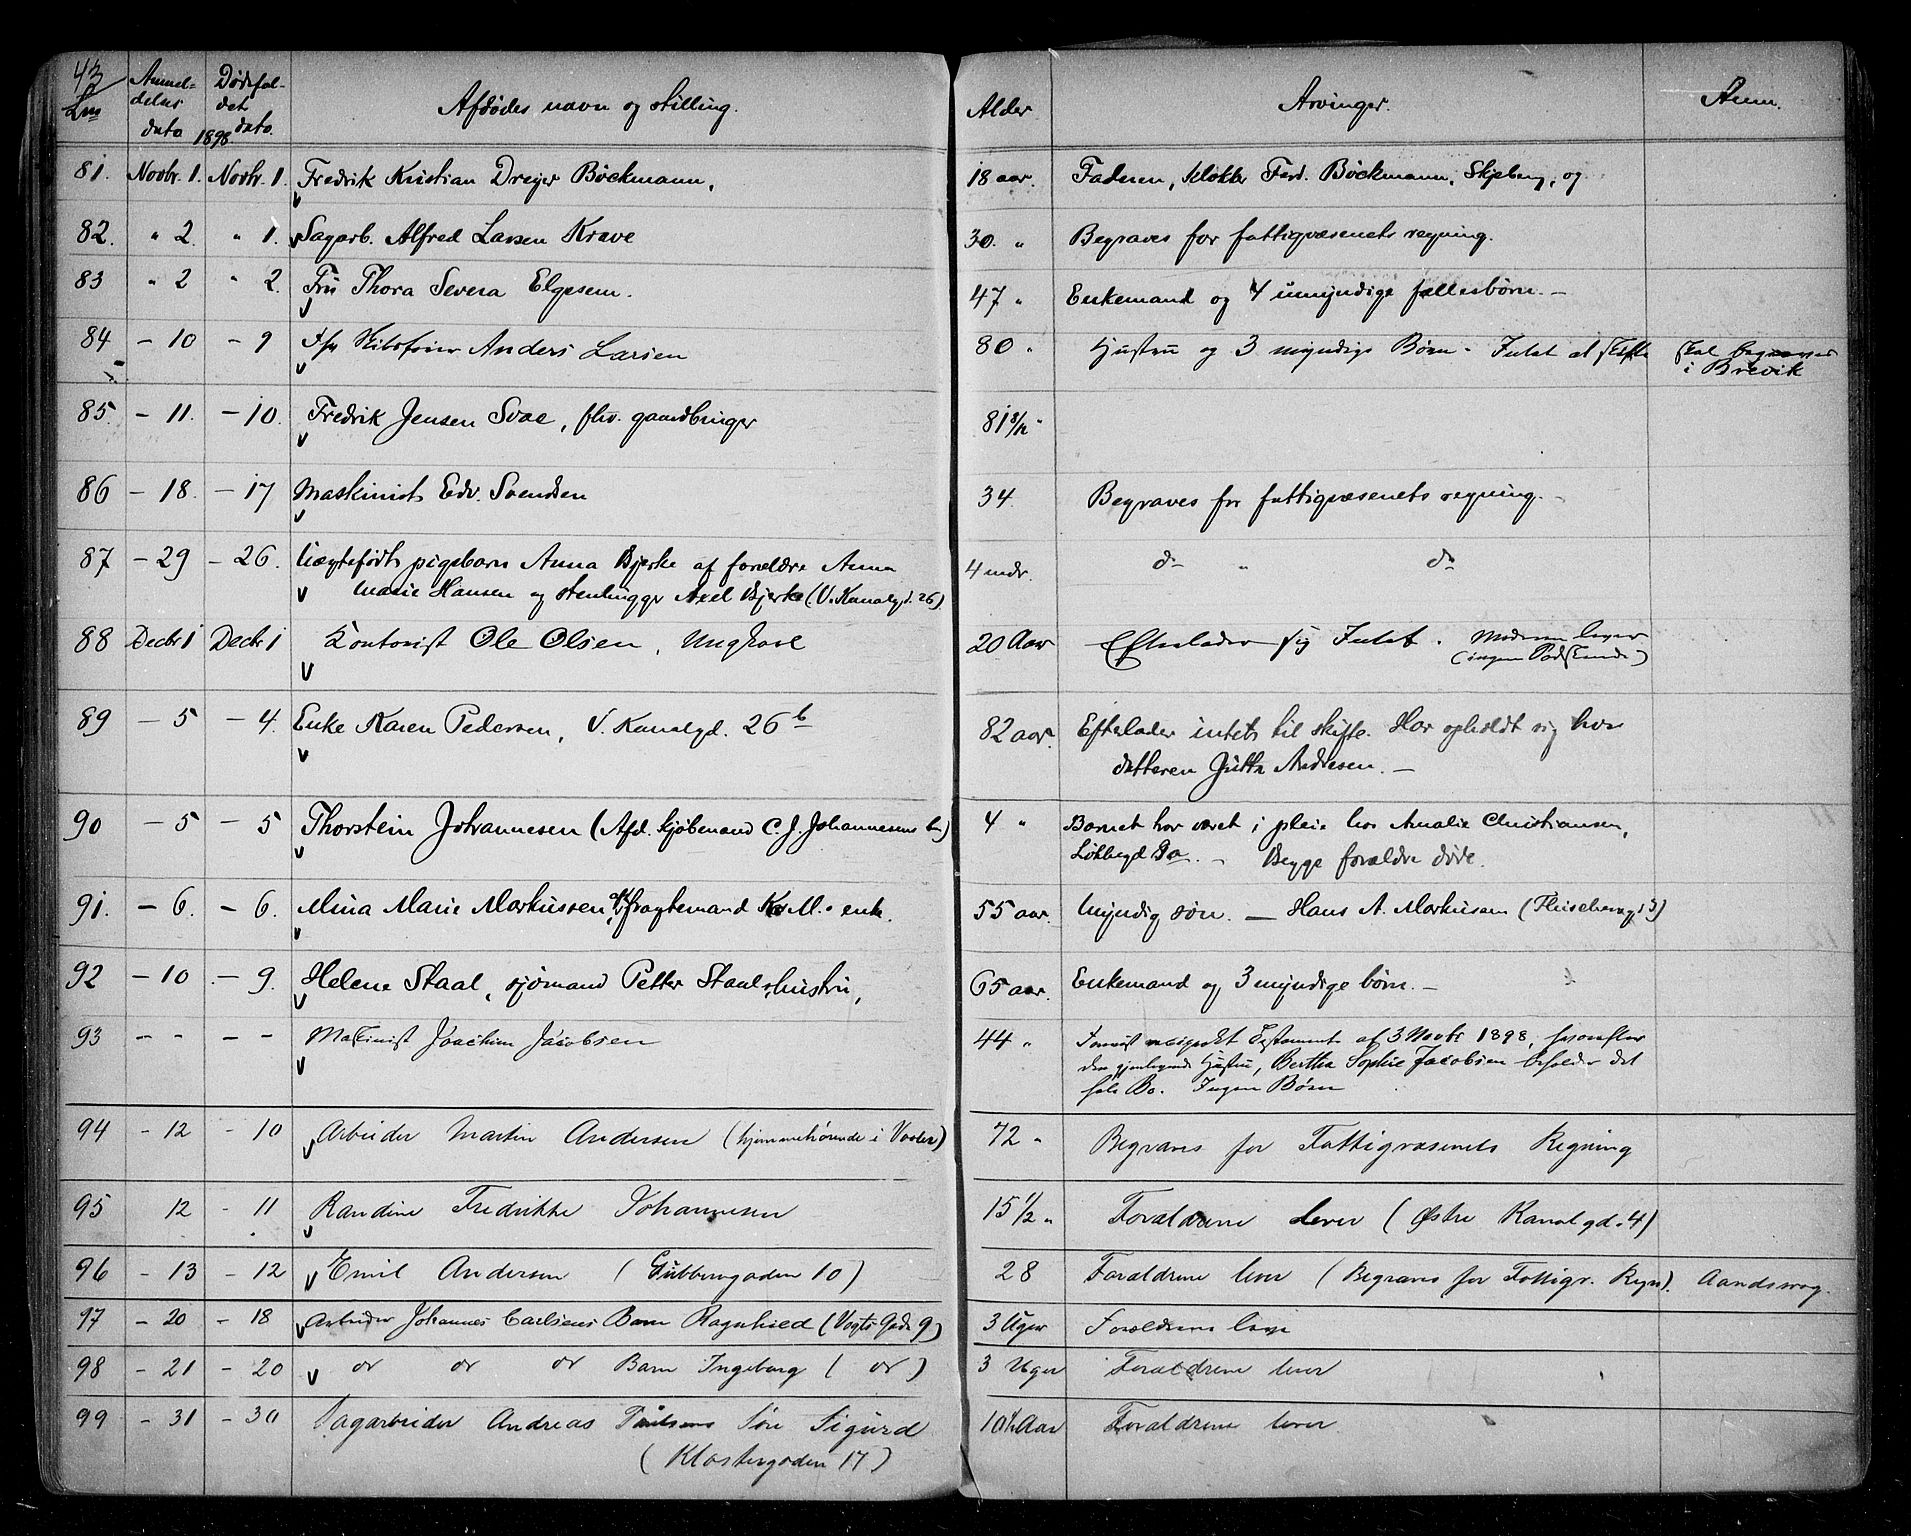 43
Lno Anmeldelses dato Dødsfaldet dato 1898 Afdødes navn og stilling. Alder Arvinger. Anm.
81. Novbr. 1. Novbr. 1. Fredrik Kristian Dreyer Böckmann, 18 aar. Faderen, klokker Ferd. Böckmann, Skjeberg, og
82. " 2. " 1. Sagarb. Alfred Larsen Krave 30. " Begraves for fattigvæsenets regning.
83 " 2 " 2. Fru Thora Severa Elgesem. 47 " Enkemand og 4 umyndige fællesbørn. —
84 — 10 — 9 Anders Larsen 80 " Hustru og 3 myndige Børn - Intet at skifte skal begraves
i Brevik
85. — 11. — 10. Fredrik Jensen Svae, fhv. gaardbruger 81 8/12 "
86 — 18. — 17 Maskinist Edv. Svendsen 34. Begraves for fattigvæsenets regning. -
87 — 29 — 26. Uægtefødt pigebarn Anna Bjerke af forældre Anna 4 mdr. do " do
Marie Hansen og stenhugger Axel Bjerke (V. Kanalgd. 26)
88 Decbr 1 Decbr 1 Kontorist Ole Olsen, Ungkarl 20 Aar Efterlader sig Intet. Moderen lever
(ingen Bødskende)
89 — 5 — 4. Enke Karen Pedersen, V. Kanalgd. 26 b 82 aar. Efterlader intet til skifte. Har opholdt sig hos
datteren Jutta Andresen. —
90 — 5 — 5 Thorstein Johannesen (Afd. kjøbmand C. J. Johannesens bn) 4 " Barnet har været i pleie hos Amalie Christiansen,
Løkkegd 9a. - Begge forældre døde.
91. — 6. — 6. Mina Marie Markussen, fragtemand M.s enke. 55 aar. Myndig søn. — Hans A. Markussen
92 — 10 — 9. Helene Staal, sjømand Petter Staals hustru, 65 aar. Enkemand og 3 myndige børn. —
93 - - - - Maskinist Joachim Jacobsen 44 " Testament af 3 Novbr 1898, hvorefter
den gjenlevende Hustru, Bertha Sophie Jacobsen beholder det
hele Bo. Ingen Børn
94 - 12 - 10 Arbeider Martin Andersen (hjemmehørende i Vaaler) 72 " Begraves for Fattigvæsenets Regning
95 12 - 11 Randine Fredrikke Johannesen 15 1/2 " Forældrene lever (Østre Kanalgd. 4)
96 - 13 - 12 Emil Andersen (Gubbergaden 10) 28 Forældrene lever (Begraves for Fattigv. Regn). Aandssvag.
97 - 20 - 18 Arbeider Johannes Carlsens Barn Ragnhild (Vogts Gade 9) 3 Uger Forældrene leve
98 - 21 - 20 do do do Barn Ingeborg ( do ) 3 Uger Forældrene lever
99 - 31 - 30 Sagarbeider Andreas Paulsens Søn Sigurd 10 1/2 Aar Forældrene lever.
(Klostergaden 17)